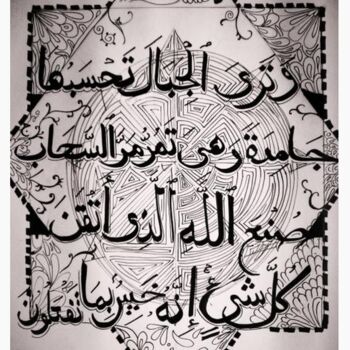 وترى الجبال تحسبها
جامدة وهي تمر مر السحاب
صنع الله الذي أتقن
كل شيء إنه خبير بما تفعلون